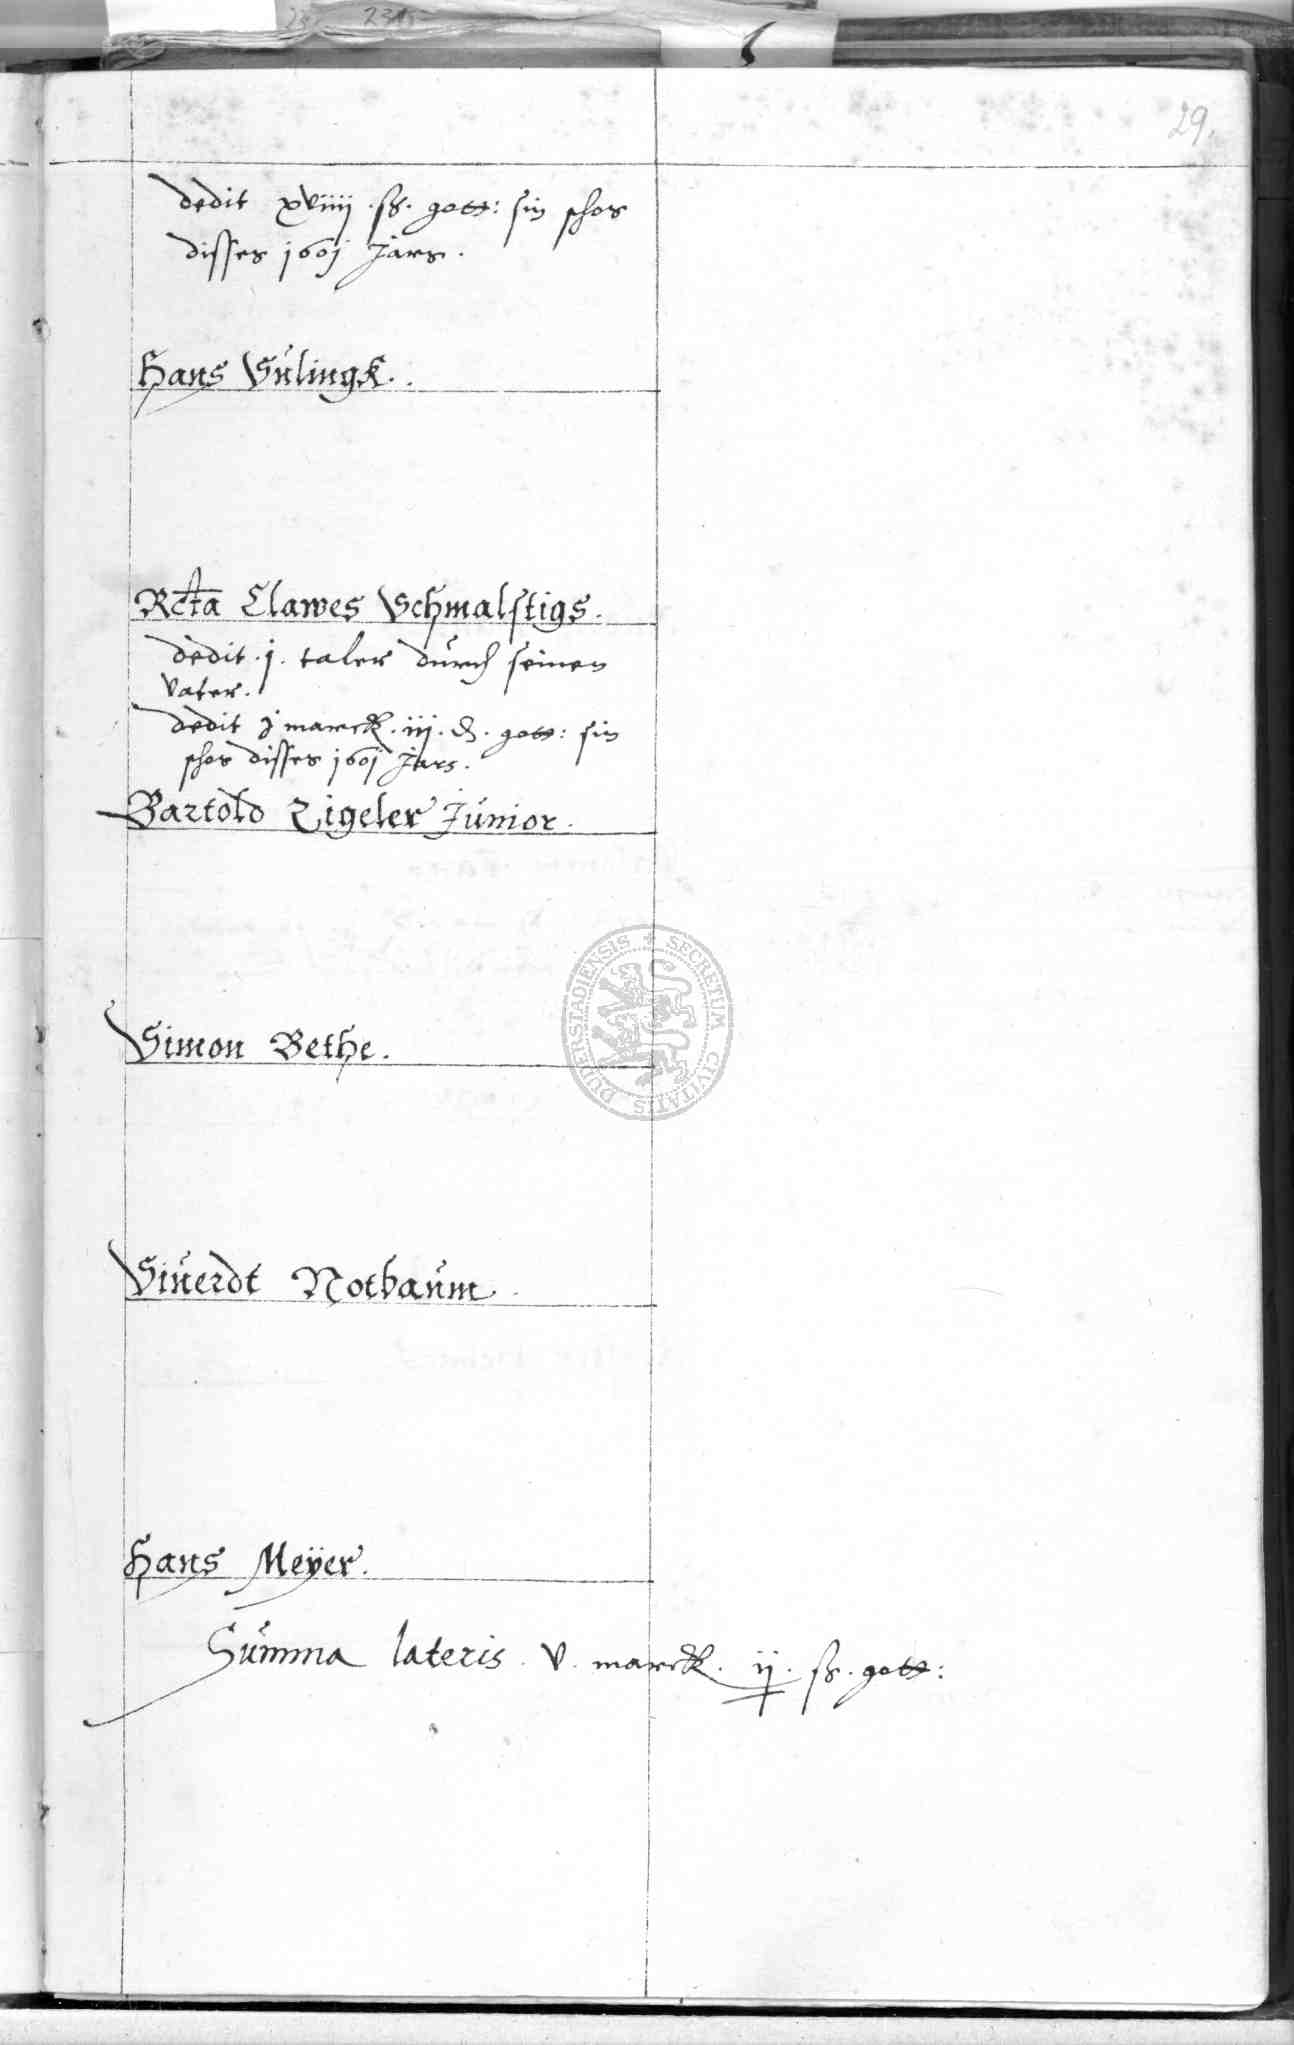 29.
dedit xviiij . ß . gott: sin schos
disses 1601 Jars .
Hans Sulingk .
Rcta Clawes Schmalstigs .
dedit . j . taler durch seinen
vater .
dedit j marck . iij . d . gott: sin
schos disses 1601 Jars .
Bartold Zigeler Junior .
Simon Bethe .
Siuerdt Notbaum .
Hans Meÿer .
Summa lateris . v . marck . ij . ß . gott:
SECRETUM CIVITATIS DUDERSTADIENSIS